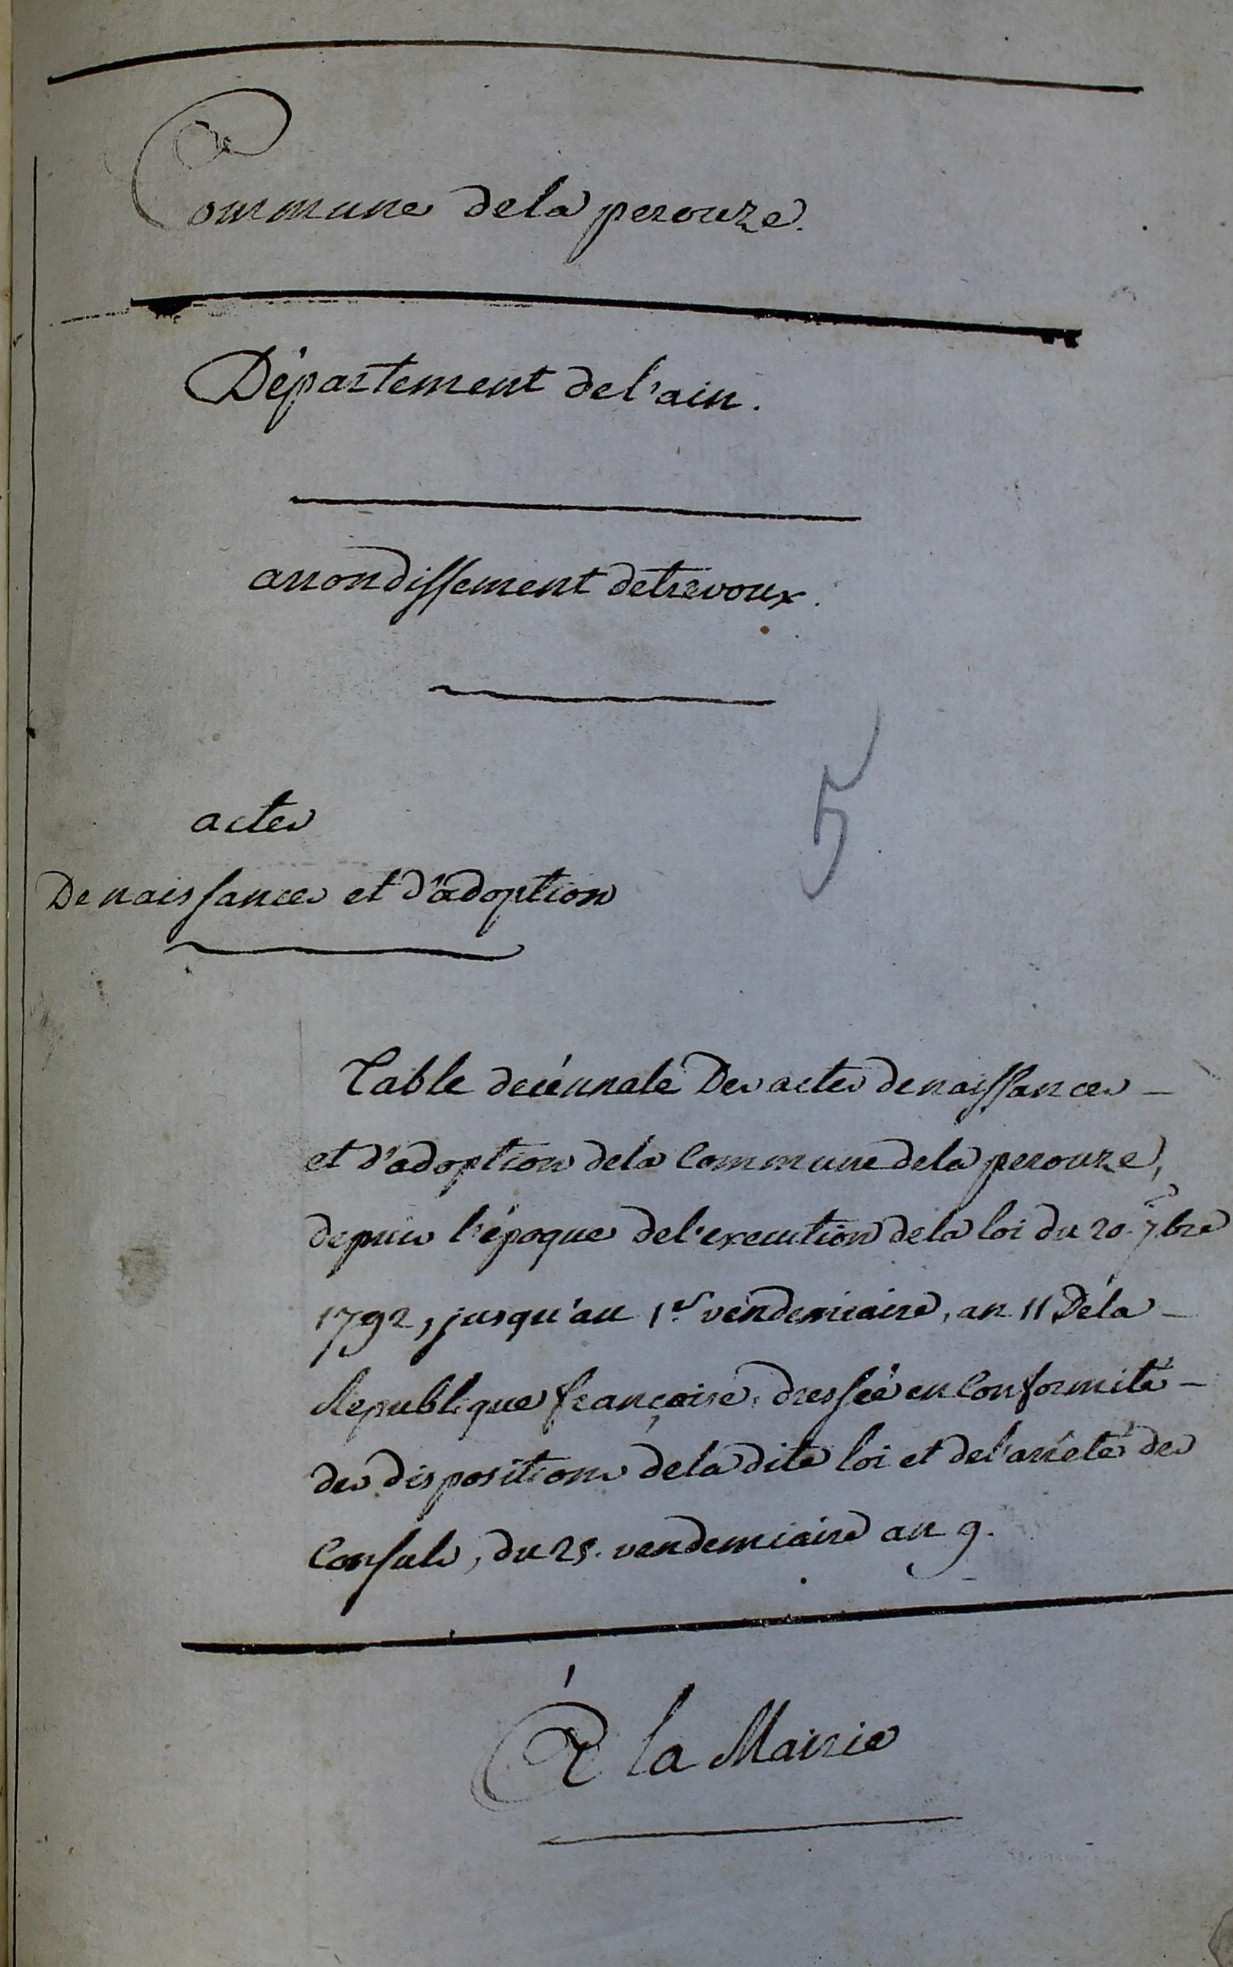 Commune de la perouze.
Département de l'ain.
arrondissement de trevoux.
5
actes
De naissances et d'adoption
Table decénnale Des actes de naissances
et d'adoption de la Commune de la perouze,
depuis l'époque de l'execution de la loi du 20. 7bre
1792, jusqu'au 1er vendemiaire, an 11 De la
Republique françoise, dressée en Conformité
des dispositions de la dite loi et de l'arrêté des
Consuls, du 25. vendemiaire an 9.
À la Mairie